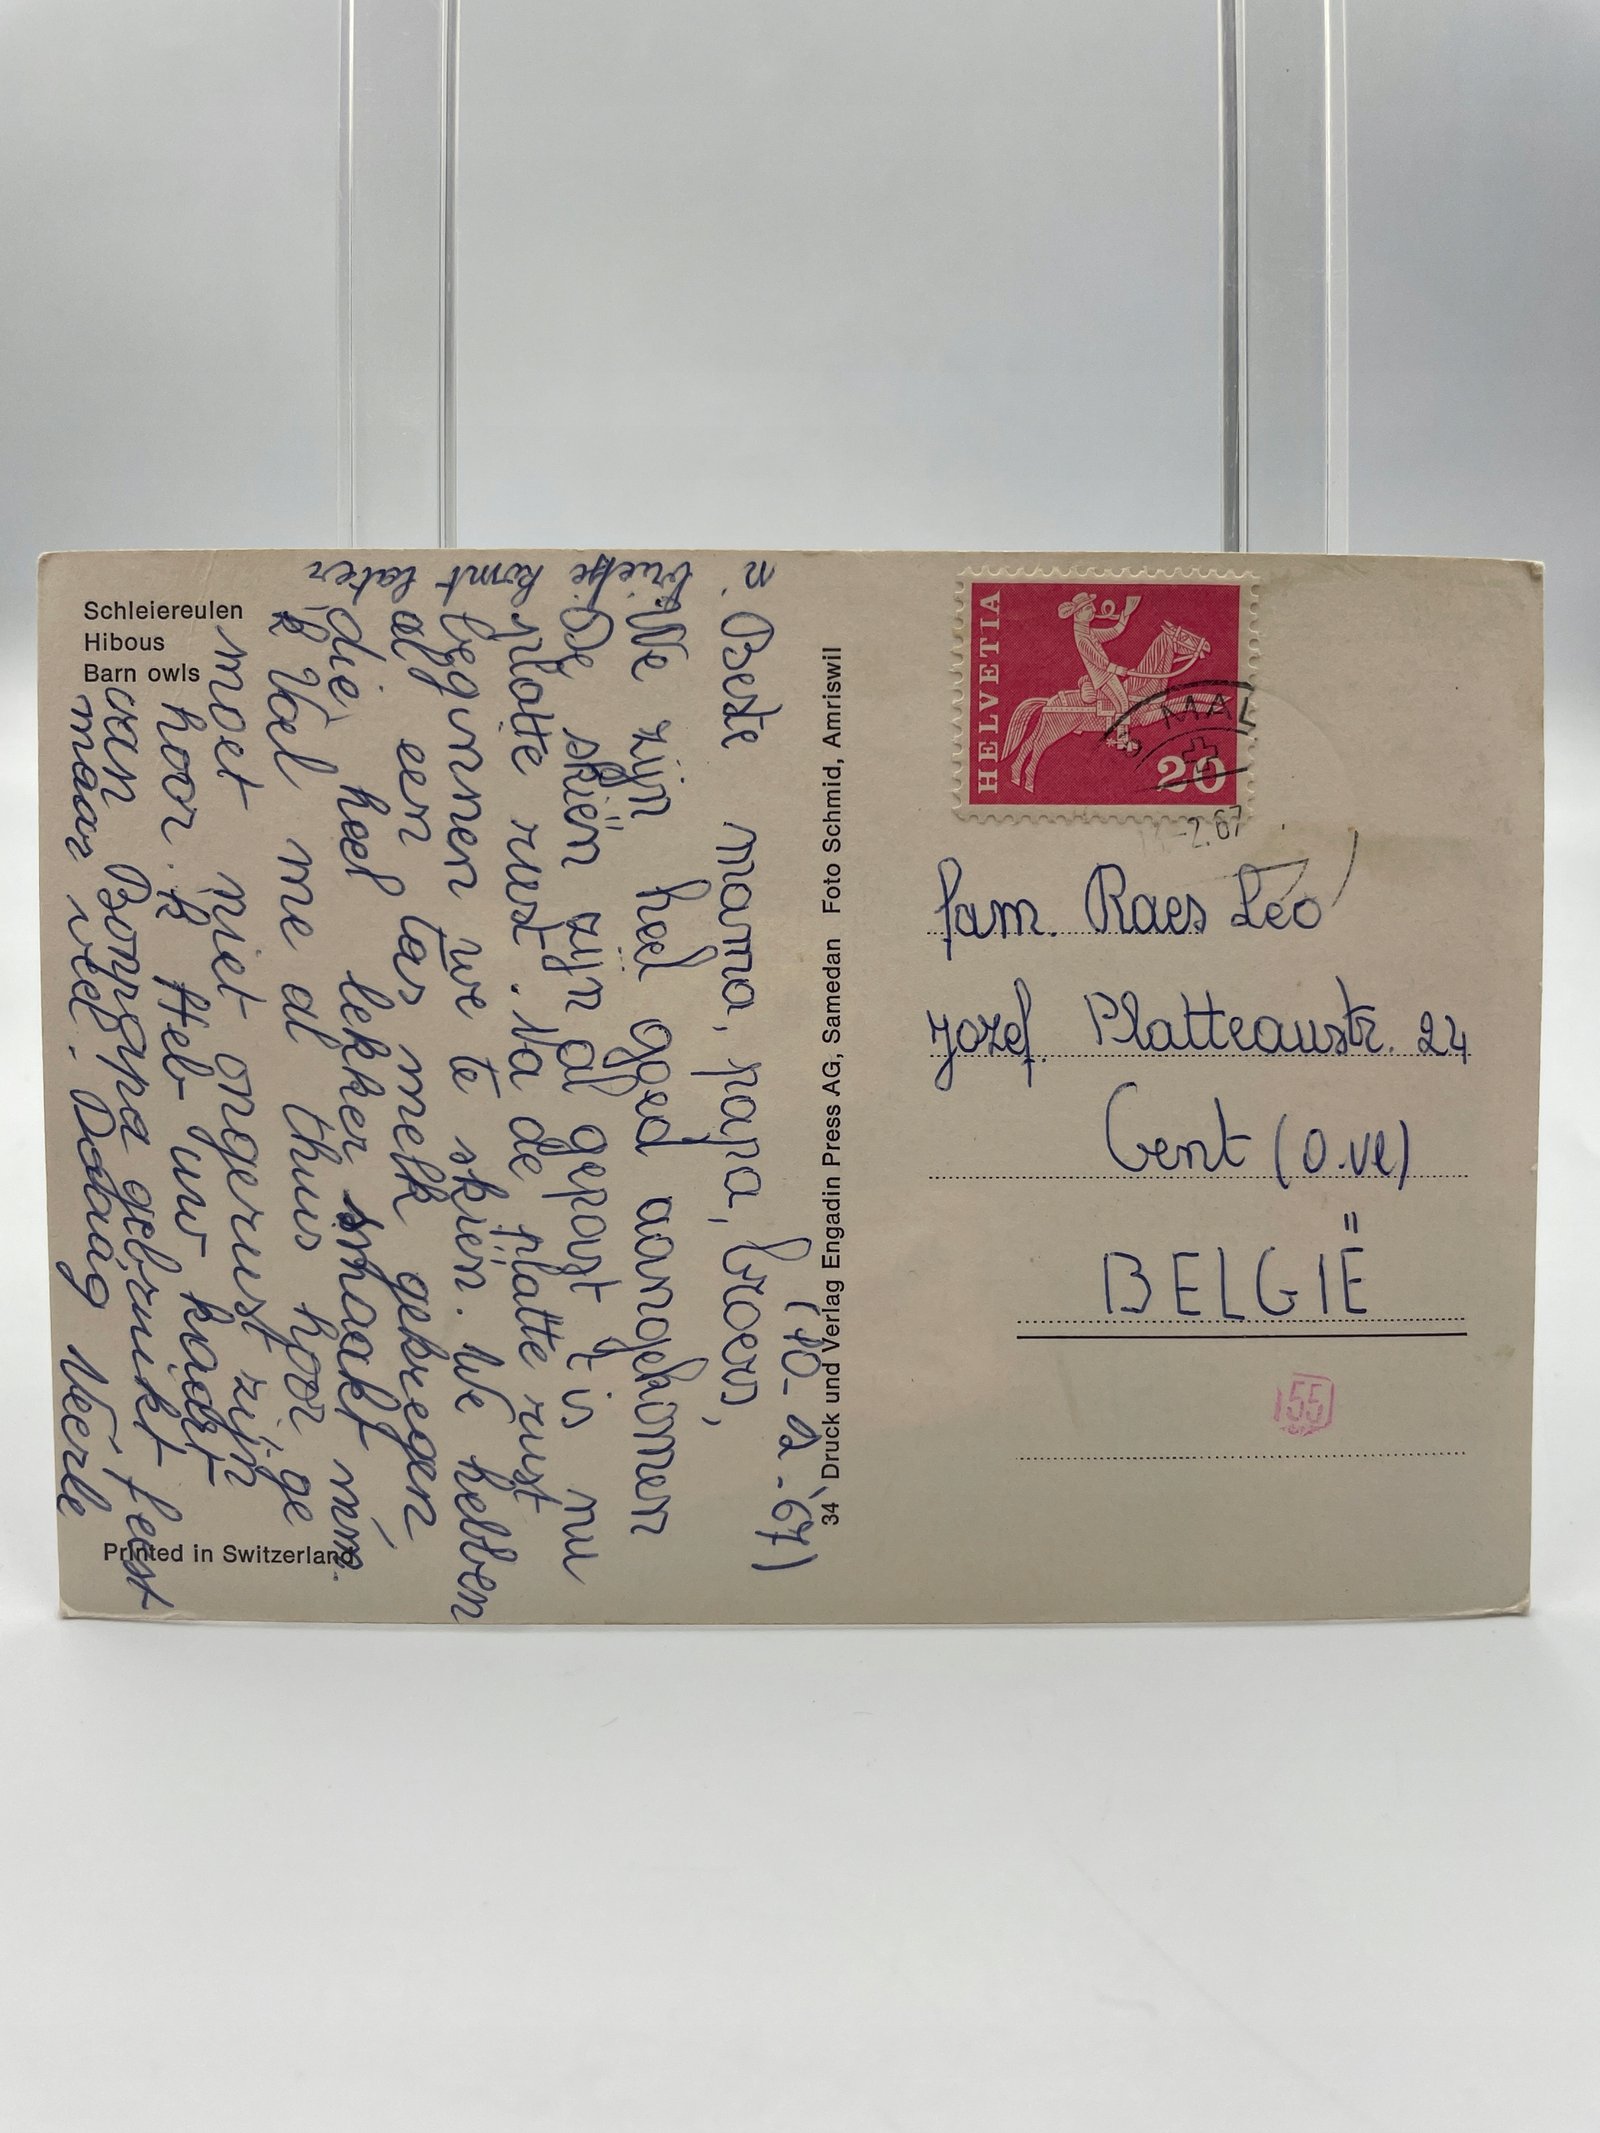 Schleiereulen
Hibous
Barn owls
(10-2-'67)
Beste mama, papa, broers,
We zijn heel goed aangekomen
De skiën zijn al gepast 't is nu
platte rust. Na de platte rust
beginnen we te skiën. We hebben
al een tas melk gekregen
die heel lekker smaakt mm.
k Voel me al thuis hoor ge
moet niet ongerust zijn
hoor. k Heb uw kaart
van Bonpapa gebruikt feest
maar veel. Daaag Veerle
n. briefje komt later
Printed in Switzerland
34 Druck und Verlag Engadin Press AG, Samedan Foto Schmid, Amriswil
HELVETIA
20
MAL
-2.67
fam. Raes Leo
Jozef. Platteaustr. 24
Gent (O.vl)
BELGIË
155